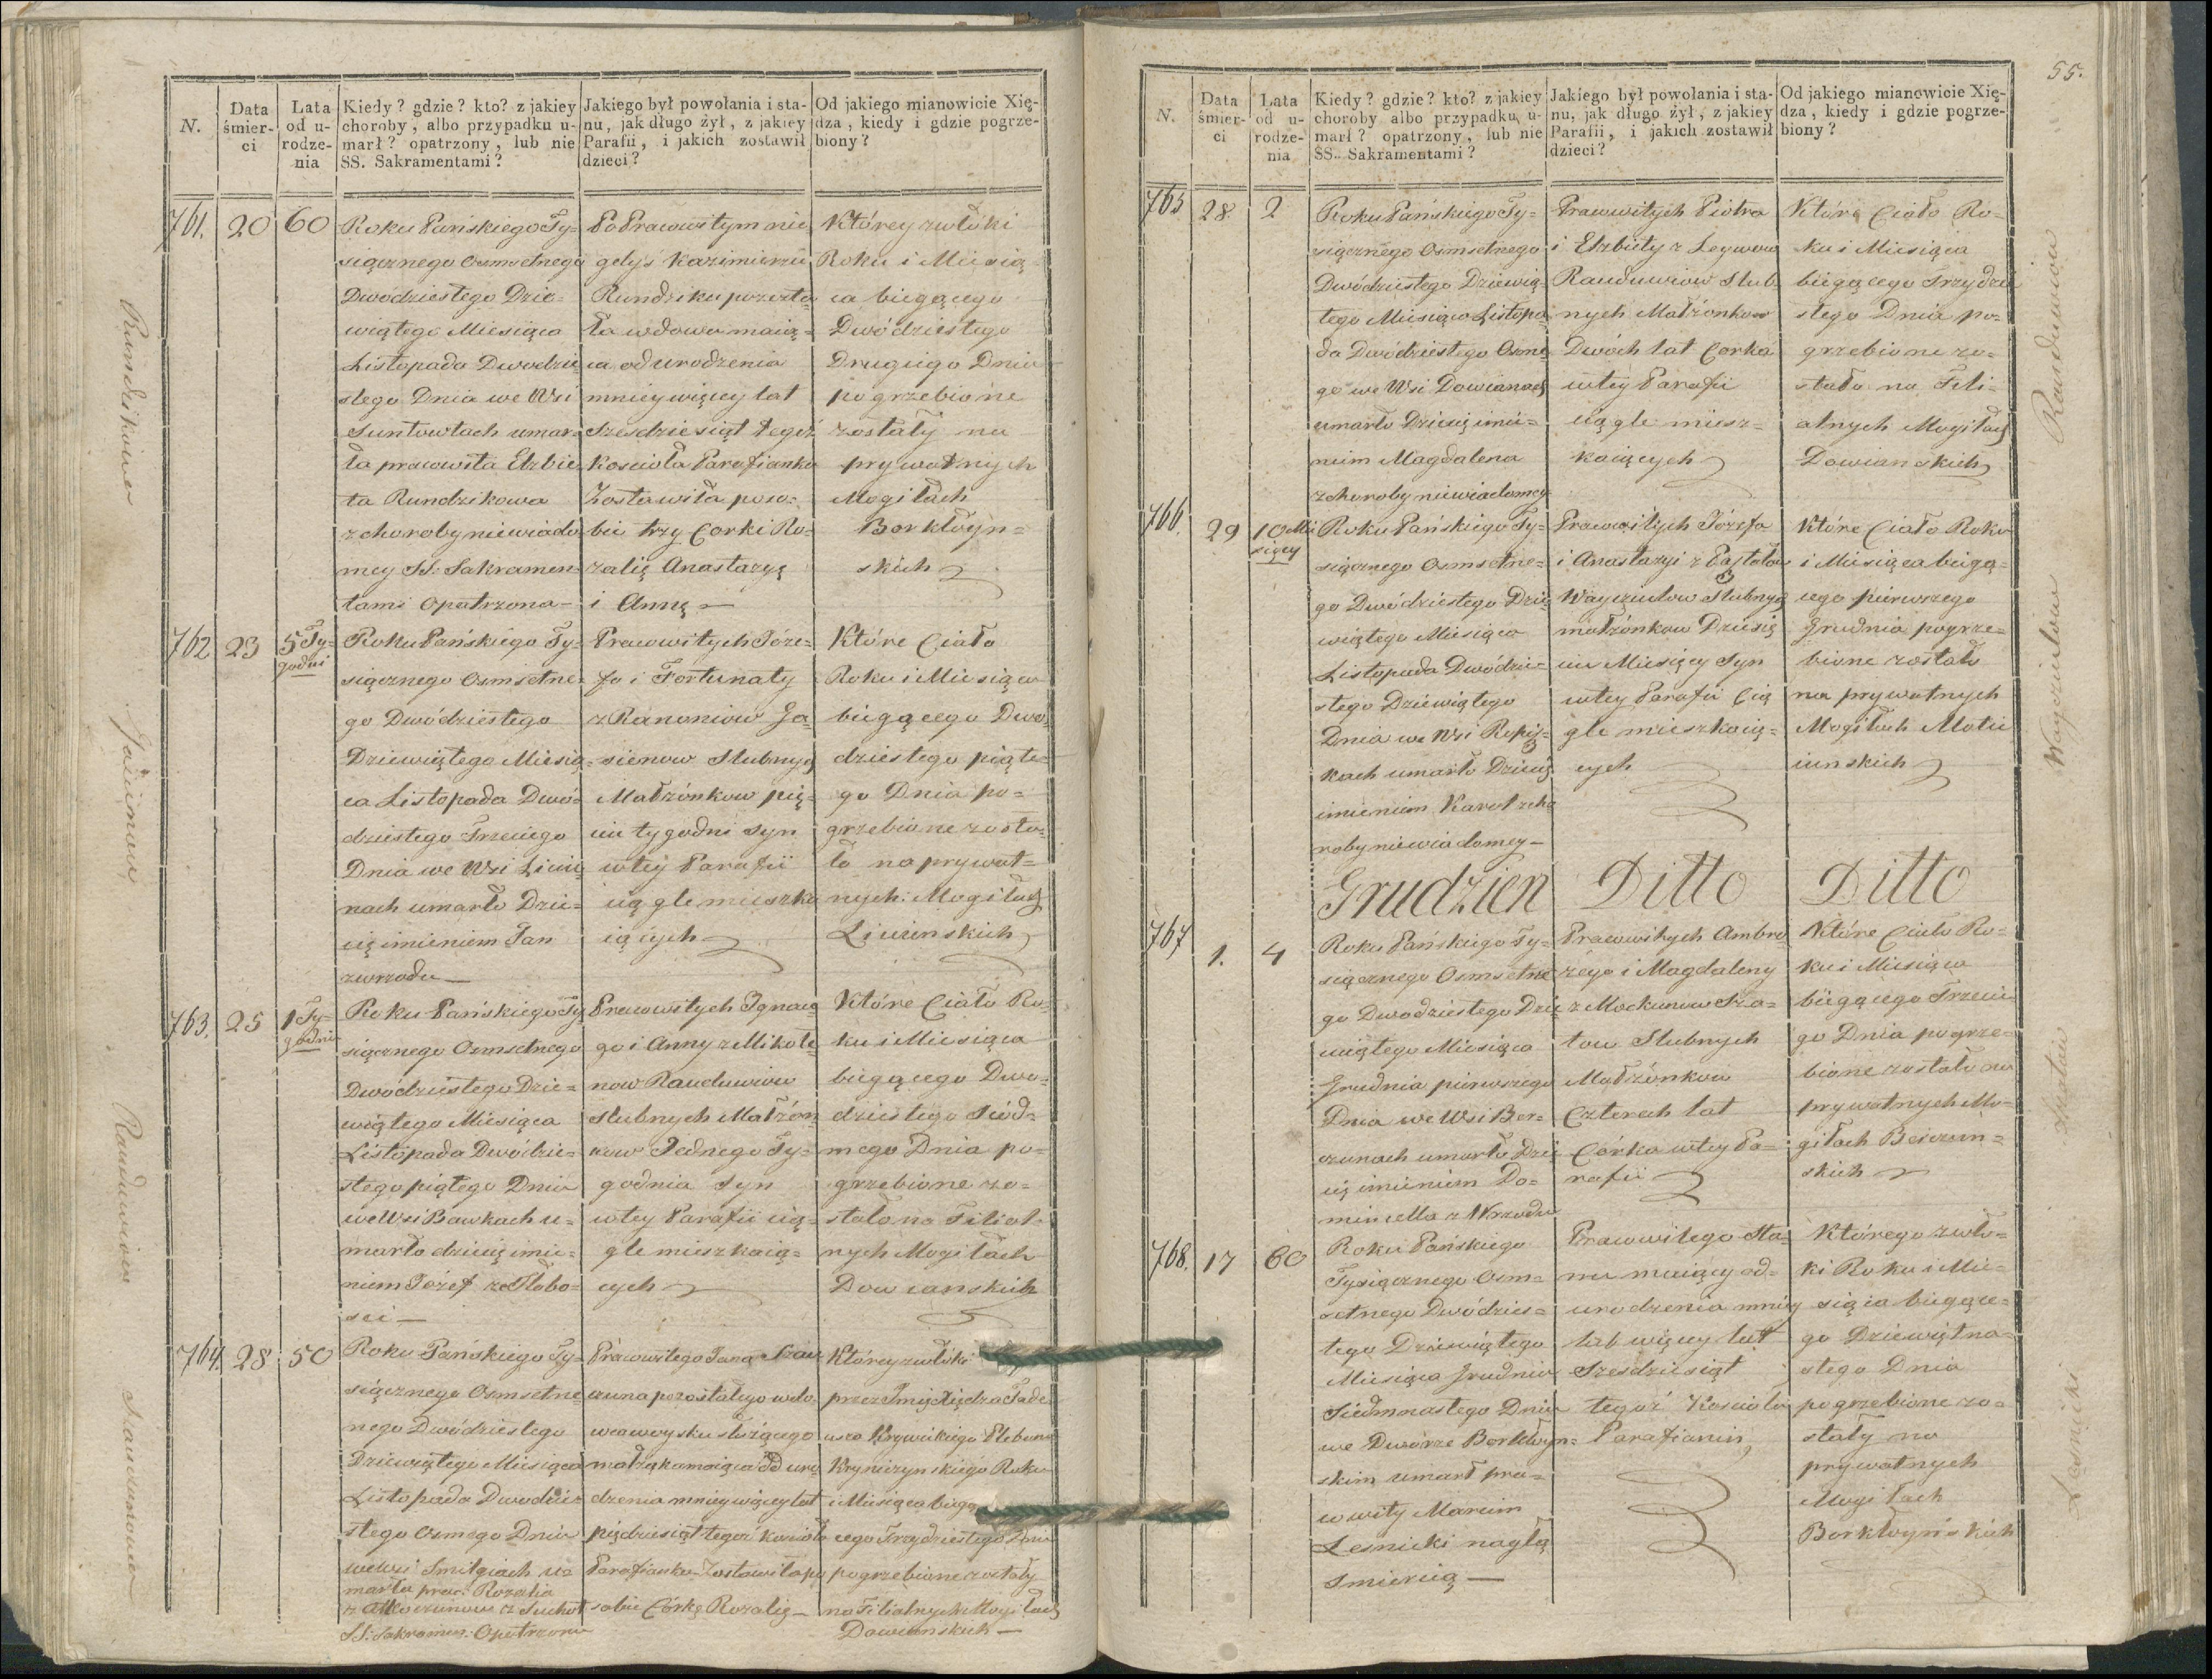 N.
Data śmier-
ci
Lata
od u-
rodze-
nia
Kiedy? gdzie? kto? z jakiey
choroby, albo przypadku u-
marł? opatrzony, lub nie
SS. Sakramentami?
Jakiego był powołania i sta-
nu, jak długo żył, z jakiey
Parafii, i jakich zostawił
dzieci?
Od jakiego mianowicie Xię-
dza, kiedy i gdzie pogrze-
biony?
761.
20
60
Roku Pańskiego Ty-
siącznego Osmsetnego
Dwódziestego Dzie-
wiątego Miesiąca
Listopada Dwodzie
stego Dnia we Wsi
Suntowtach umar-
ła pracowita Elzbie
ta Rundzikowa
z choroby niewiado
mey SS: Sakramen-
tami Opatrzona—
Po Pracowitym nie
gdyś Kazimierzu
Rundziku pozosta
ła wdowa maią-
ca od urodzenia
mniey więcey lat
Szesdziesiąt tegoż
Koscioła Parafianka
Zostawiła poso-
bie trzy Corki Ro-
zalię Anastazyę
i Annę—
Którey zwłoki
Roku i Miesią-
ca biegącego
Dwódziestego
Drugiego Dnia
pogrzebione
zostały na
prywatnych
Mogiłach
Borkłoyn-
skich
Rundzikowa
762
23
5 Ty-
godni
Roku Pańskiego Ty-
siącznego Osmsetne-
go Dwódziestego
Dziewiątego Miesią-
ca Listopada Dwó-
dziestego Trzeciego
Dnia we Wsi Licią
nach umarło Dzie-
cię imieniem Jan
zwrzodu—
Pracowitych Józe-
fa i Fortunaty
z Ranoniow Ja-
sienow Slubnych
Małżónkow pię-
ciu tygodni Syn
wtey Parafii
ciągle mieszka
iących
Które Ciało
Roku i Miesiąca
biegącego Dwó-
dziestego piąte-
go Dnia po-
grzebione zosta-
ło na prywat-
nych Mogiłach
Licienskich
763.
25
1 Ty-
godni
Roku Pańskiego Ty
siącznego Osmsetnego
Dwódziestego Dzie-
wiątego Miesiąca
Listopada Dwódzie-
stego piątego Dnia
we Wsi Bawkach u-
marło dziecię imie-
niem Józef ze Słabo-
sci—
Pracowitych Ignace
go i Anny z Mikołe
now Rauduwiow
Slubnych Małżón
kow Jednego Ty-
godnia Syn
wtey Parafii cią-
gle mieszkaią-
cych
Które Ciało Ro-
ku i Miesiąca
biegącego Dwó-
dziestego Siód-
mego Dnia po-
grzebione zo-
stało na Filial-
nych Mogiłach
Dowianskich
764
28
50
Roku Pańskiego Ty-
siącznego Osmsetne
nego Dwódziestego
Dziewiątego Miesiąca
Listopada Dwodzie
stego Osmego Dnia
we wsi Smilgiach u-
marła prac: Rozalia
z Suchot
SS: Sakramen: Opatrzona
Pracowitego Jana Szau
czuna pozostałego wdo
wca woysku służącego
małżąka maiąca od uro
dzenia mniey więcey lat
pięćdziesiąt tegoż kosciola
Parafianka Zostawiła po
sobie Córkę Rozalię—
Którey zwłoki
przez Jmię Xiędza Tade
usza Krywickiego Plebana
Kryniczynskiego Roku
i Miesiąca biegą
cego Trzydziestego Dnia
pogrzebione zostały
na Filialnych Mogiłach
Dowianskich—
55.
N.
Data
śmier-
ci
Lata
od u-
rodze-
nia
Kiedy? gdzie? kto? z jakiey
choroby albo przypadku, u-
marł? opatrzony, lub nie
SS. Sakramentami?
Jakiego był powołania i sta-
nu, jak długo żył, z jakiey
Parafii, i jakich zostawił
dzieci?
Od jakiego mianowicie Xię-
dza, kiedy i gdzie pogrze-
biony?
765
28.
2
Roku Pańskiego Ty-
siącznego Osmsetnego
Dwódziestego Dziewią
tego Miesiąca Listopa-
da Dwódziestego Osme
go we Wsi Dowianach
umarło Dziecię imie-
niem Magdalena
z choroby niewiadomey
Pracowitych Piotra
i Elzbiety z Leywow
Rauduwiow Slub
nych Małżonkow
Dwóch lat Corka
wtey Parafii
ciągle miesz-
kaiących
Które Ciało Ro-
ku i Miesiąca
biegącego Trzydzie
stego Dnia po-
grzebione zo-
stało na Fili-
alnych Mogiłach
Dowianskich
Rauduwiow
766.
29
10 Mie
sięcy
Roku Pańskiego Ty-
siącznego Osmsetne-
go Dwódziestego Dzie
wiątego Miesiąca
Listopada Dwódzie-
stego Dziewiątego
Dnia we Wsi Repisz-
kach umarło Dziecię
imieniem Karol z cho
roby niewiadomey—
Pracowitych Józefa
i Anastazyi z
Wayczulow Slubnych
małżónkow Dziesię
ciu Miesięcy Syn
wtey Parafii Cią
gle mieszkaią-
cych
Które Ciało Roku
i Miesiąca biegą-
cego pierwszego
Grudnia pogrze-
bione zostało
na prywatnych
Mogiłach Motie
iunskich
Grudzien
Ditto
Ditto
767
1.
4
Roku Pańskiego Ty-
siącznego Osmsetne
go Dwodziestego Dzie
wiątego Miesiąca
Grudnia pierwszego
Dnia we Wsi Ber-
czunach umarło Dzie
cię imieniem Do-
micella z Wrzodu
Pracowitych Ambro
żego i Magdaleny
z Mockunow Sza-
tow Slubnych
Małżónkow
Czterech lat
Córka wtey Pa-
rafii
Które Ciało Ro-
ku i Miesiąca
biegącego Trzecie
go Dnia pogrze-
bione zostało na
prywatnych Mo-
giłach Berczun-
skich
768.
17
60
Roku Pańskiego
Tysiącznego Osm-
setnego Dwódzies-
tego Dziewiątego
Miesiąca Grudnia
Siedmnastego Dnia
we Dworze Borkłoyn-
skim umarł pra-
cowity Marcin
Lesnicki nagłą
Smiercią—
Pracowitego Sta-
nu maiący od-
urodzenia mniey
lub więcey lat
Szesdziesiąt
tegoż Kosciola
Parafianin
Którego zwło-
ki Roku i Mie-
siąca biegące-
go Dziewiętna-
stego Dnia
pogrzebione zo-
stały na
prywatnych
Mogiłach
Borkłoynskich